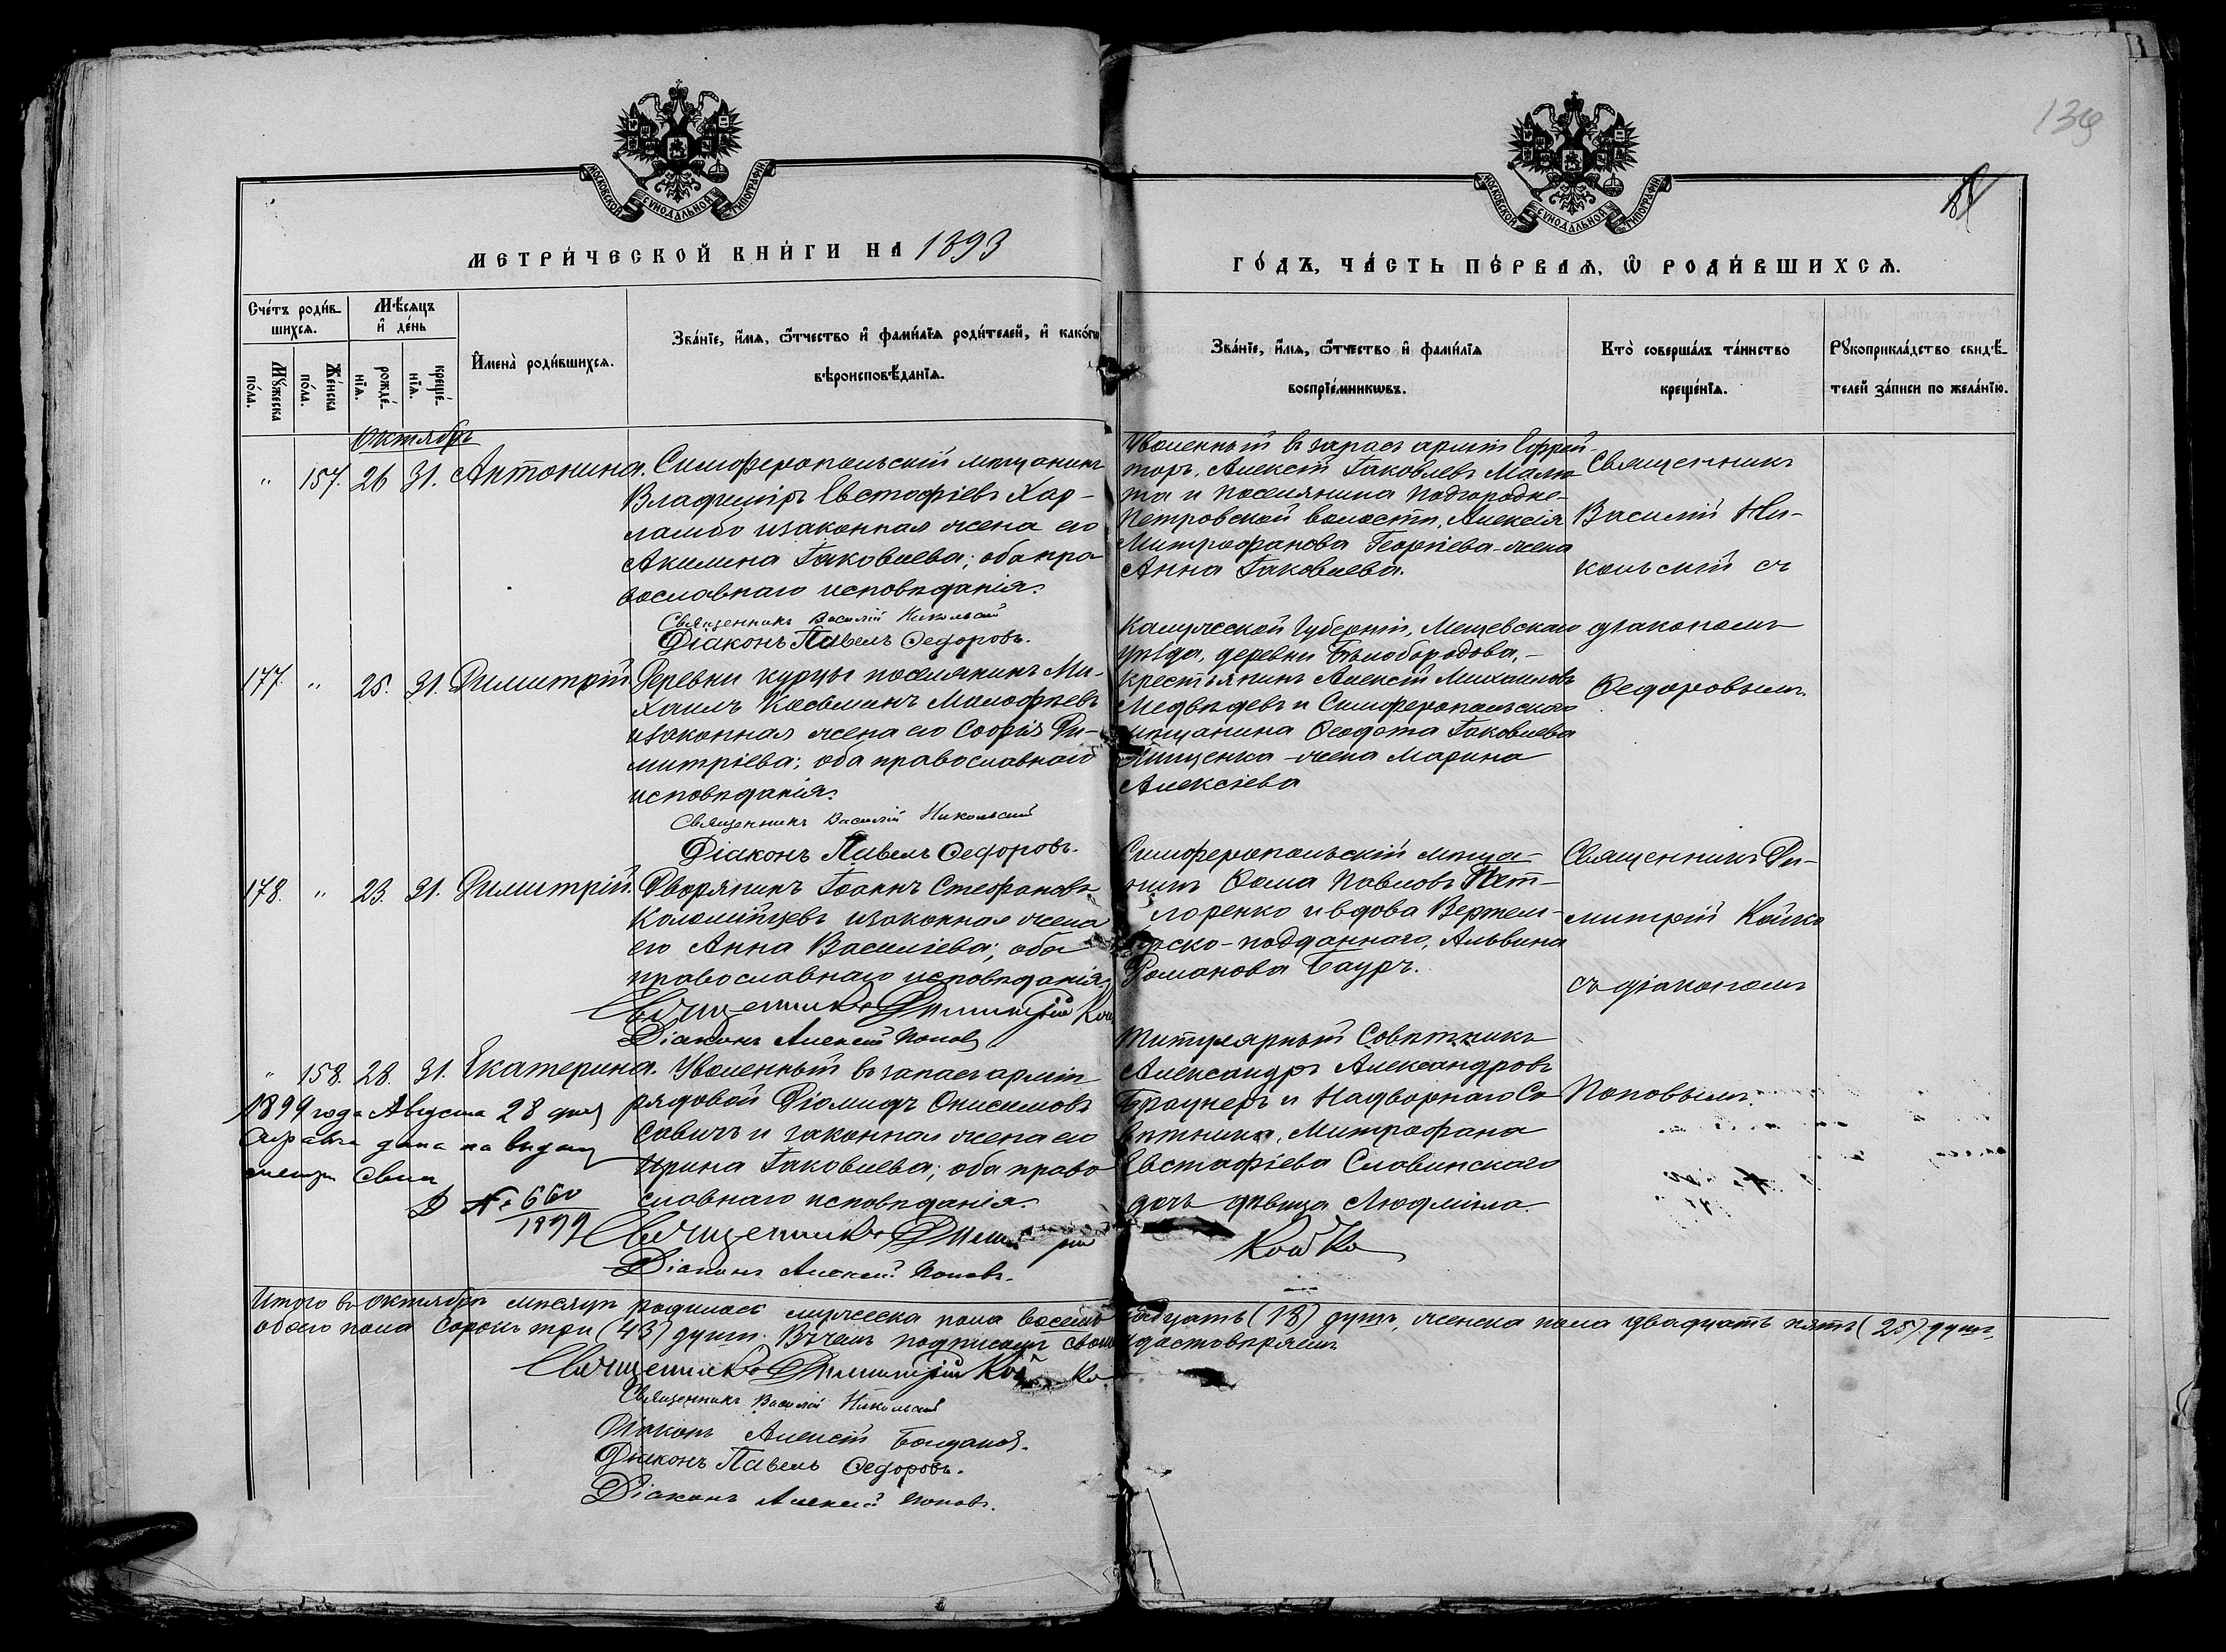 139
МОСКОВСКОЙ СѴНОДАЛЬНОЙ ТИПОГРАФІИ
МОСКОВСКОЙ СѴНОДАЛЬНОЙ ТИПОГРАФІИ
МЕТРИ́ЧЕСКОЙ КНИ́ГИ НА 1893
ГО́ДЪ, ЧА́СТЬ ПЕ́РВАѦ, Ѽ РОДИ́ВШИХСѦ.
Сче́тъ роди́в-
шихсѧ.
Мꙋ́жеска по́ла.
Же́нска по́ла.
Мѣ́сяцъ
и҆ де́нь
рожде́-нїѧ.
креще́-нїѧ.
И҆мена̀ роди́вшихсѧ.
Зва́нїе, и҆́мѧ, ѻ҆́тчество и҆ фами́лїѧ роди́телей, и҆ како́гѡ
вѣроисповѣ́данїѧ.
Зва́нїе, и҆́мѧ, ѻ҆́тчество и҆ фами́лїѧ
воспрїе́мникѡвъ.
Кто̀ соверша́лъ та́инство
креще́нїѧ.
Рꙋкоприкла́дство свидѣ́-
телей за́писи по жела́нїю.
Октябрь
" 157. 26 31. Антонина.
Симферопольскій мѣщанинъ
Владиміръ Евстафіевъ Хар-
ламбо и законная жена его
Акилина Іаковлева; оба пра-
вославнаго исповѣданія.
Священникъ Василій Никольскій
Діаконъ Павелъ Ѳедоровъ.
Уволенный въ запасъ арміи Ефрей-
торъ, Алексій Іаковлевъ Малю-
та и поселянина Подгородне-
Петровской волости, Алексія
Митрофанова Георгіева жена
Анна Іаковлева.
Священникъ
Василій Ни-
кольскій съ
діакономъ
Ѳедоровымъ.
177. " 25. 31. Димитрій
Деревни Курцы поселянинъ Ми-
хаилъ Косьминъ Малофѣевъ
и законная жена его Софія Ди-
митріева; оба православнаго
исповѣданія.
Священникъ Василій Никольскій
Діаконъ Павелъ Ѳедоровъ.
Калужской Губерніи, Мещевскаго
уѣзда, деревни Бѣлобородова,
крестьянинъ Алексій Михаиловъ
Медвѣдевъ и Симферопольскаго
мѣщанина Ѳеодота Іаковлева
жена Марина
Алексіева
178. " 23. 31. Димитрій.
Дворянинъ Іоаннъ Стефановъ
Коломійцевъ и законная жена
его Анна Васильева; оба
православнаго исповѣданія.
Священникъ Димитрій Кой
Діаконъ Алексій Поповъ
Симферопольскій мѣща-
нинъ Ѳома Павловъ
и вдова Вертем-
бергско-подданнаго, Альвина
Романова Бауръ.
Священникъ Ди-
митрій Койко
съ діакономъ
Поповымъ.
" 158. 28. 31. Екатерина.
Уволенный въ запасъ арміи
рядовой Діомидъ Онисимовъ
Савичъ и законная жена его
Ирина Іаковлева; оба право-
славнаго исповѣданія.
Священникъ Димитрій
Діаконъ Алексій Поповъ.
Титулярный Совѣтникъ
Александръ Александровъ
Браунеръ и Надворнаго Со-
вѣтника, Митрофана
Евстафіева Словинскаго
дочь дѣвица Людмила.
Койко
1899 года Августа 28 дня
Справка дана на выдачу
метр. Свид.
№ 660
1899
Итого въ октябрѣ мѣсяцѣ родилось мужеска пола восемнадцать (18) душъ, женска пола двадцать пять (25) душъ,
обоего пола сорокъ три (43) души. Въ чемъ подписомъ своимъ удостовѣряемъ
Священникъ Димитрій Койко
Священникъ Василій Никольскій
Діаконъ Алексій
Діаконъ Павелъ Ѳедоровъ.
Діаконъ Алексій Поповъ.